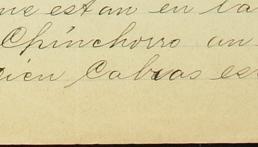 que estan en la
Chinchorro un
cien Cabras es